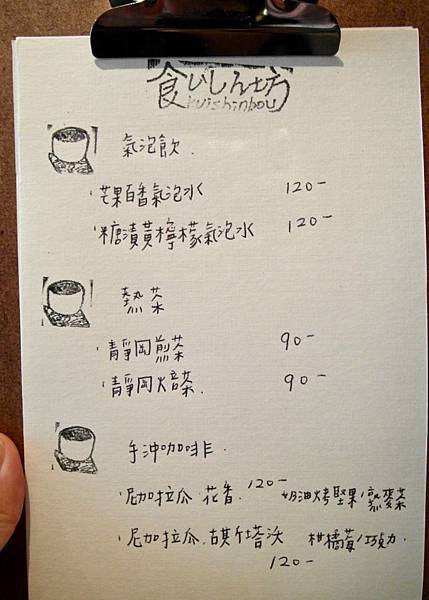 食いしん坊
kuishinbou
氣泡飲.
·芒果百香氣泡水 120-
·糖漬黃檸檬氣泡水 120-
熱茶
·靜岡煎茶 90-
·靜岡焙茶. 90-
手沖咖啡.
·尼加拉瓜.花香. 120- 奶油烤堅果/蕎麥茶
·尼加拉瓜.古其吉塔沃 柑橘莓/巧克力.
120-